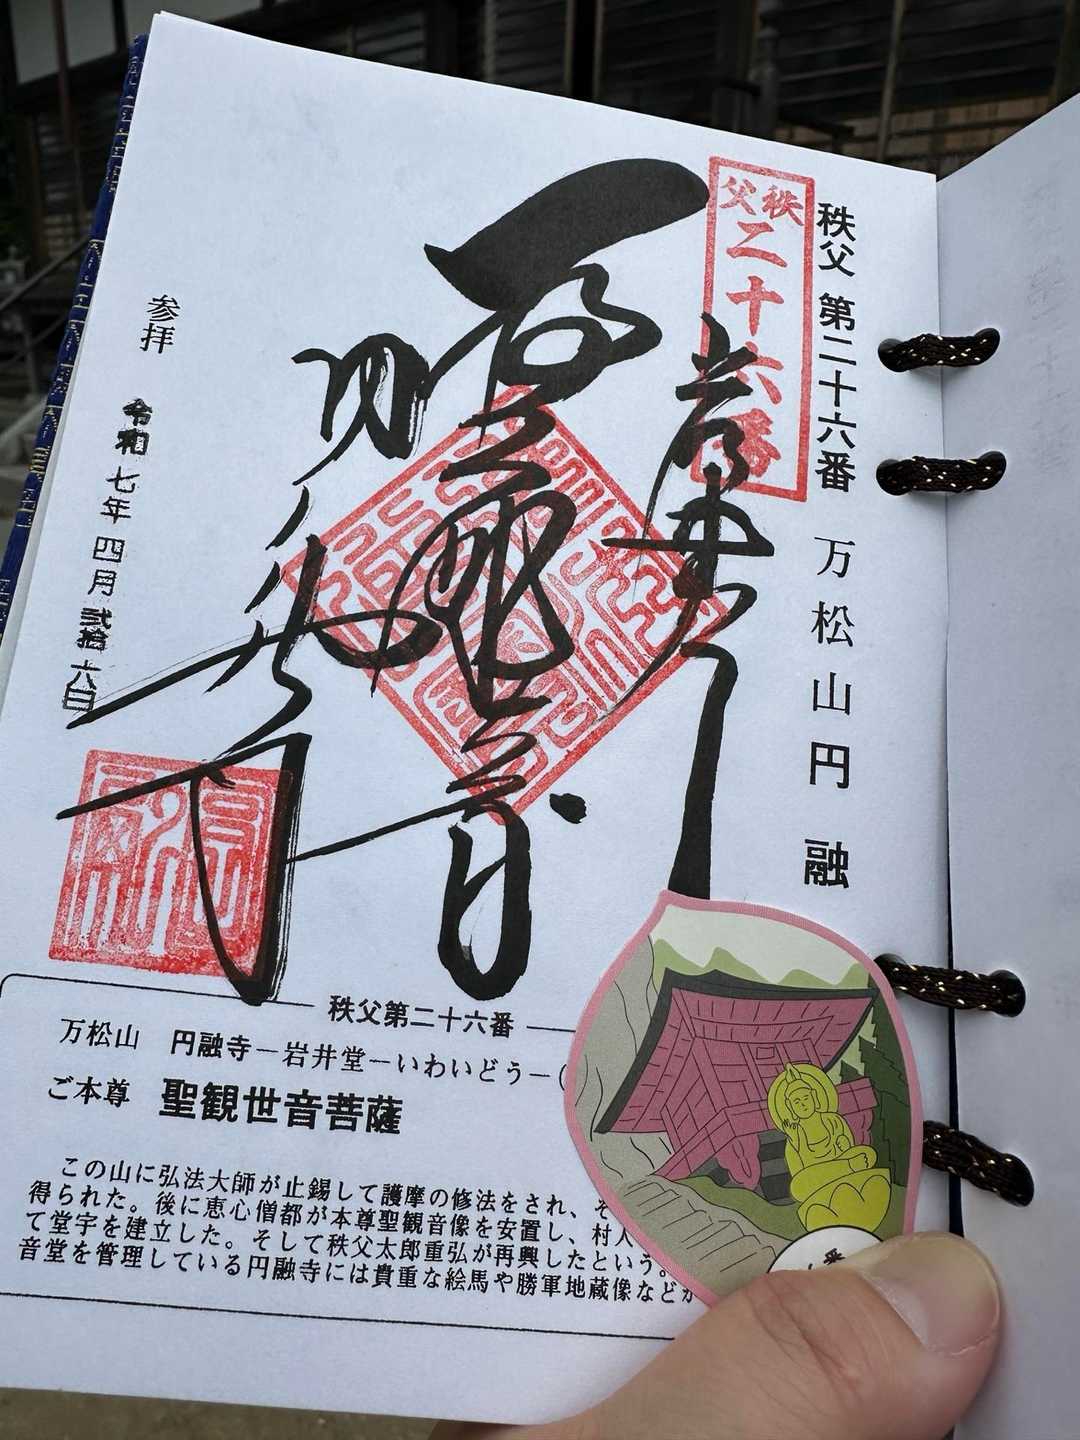 秩父 第二十六番 万松山円融
秩父
二十六番
岩井堂
聖観世音
円融寺
参拝 令和七年四月弐拾六日
秩父第二十六番
万松山 円融寺－岩井堂－いわいどう－(
ご本尊 聖観世音菩薩
この山に弘法大師が止錫して護摩の修法をされ、そ
得られた。後に恵心僧都が本尊聖観音像を安置し、村人
て堂宇を建立した。そして秩父太郎重弘が再興したという。
音堂を管理している円融寺には貴重な絵馬や勝軍地蔵像などが
番